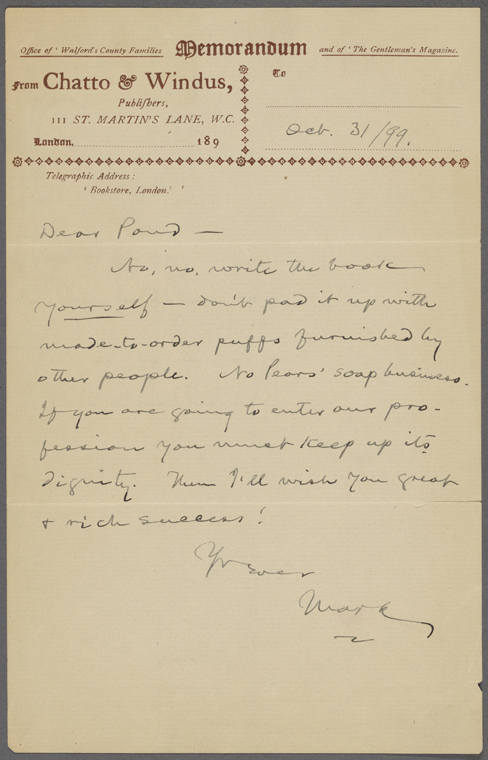 Office of 'Walford's County Families Memorandum and of 'The Gentleman's Magazine.
From Chatto & Windus,
Publishers,
111 ST. MARTIN'S LANE, W.C.
London, 189
To
Oct. 31/99.
Telegraphic Address:
'Bookstore, London.'
Dear Pond —
No, no, write the book
yourself — don't pad it up with
made-to-order puffs furnished by
other people. No Pears' soap business.
If you are going to enter our pro-
fession you must keep up its
dignity. Then I'll wish you great
& rich success!
Yr Ever
Mark